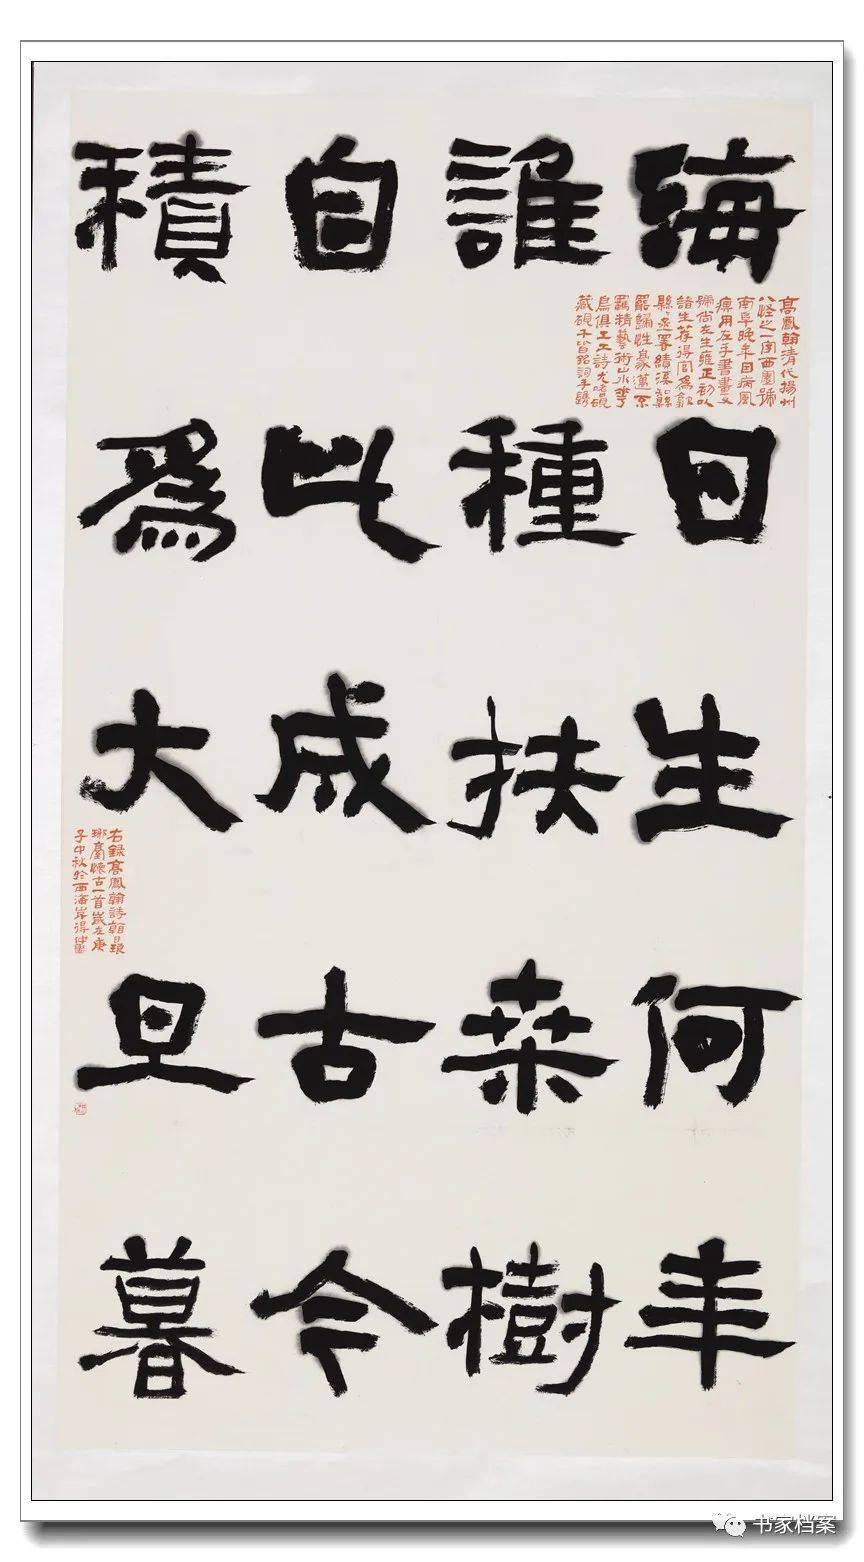 海日生何年
高鳳翰清代揚州
八怪之一字西園號
南阜晚年因病風
痹用左手書畫又
號尚左生雍正初以
諸生荐得官為歙
縣丞署績溪縣
罷歸性豪邁不
羈精藝術山水花
鳥俱工工詩尤嗜硯
藏硯千皆銘詞手鐫
誰種扶桑樹
自此成古今
積爲大旦暮
右録高鳳翰詩朝日琅
琊臺懷古一首歲在庚
子中秋於西海岸得
书家档案